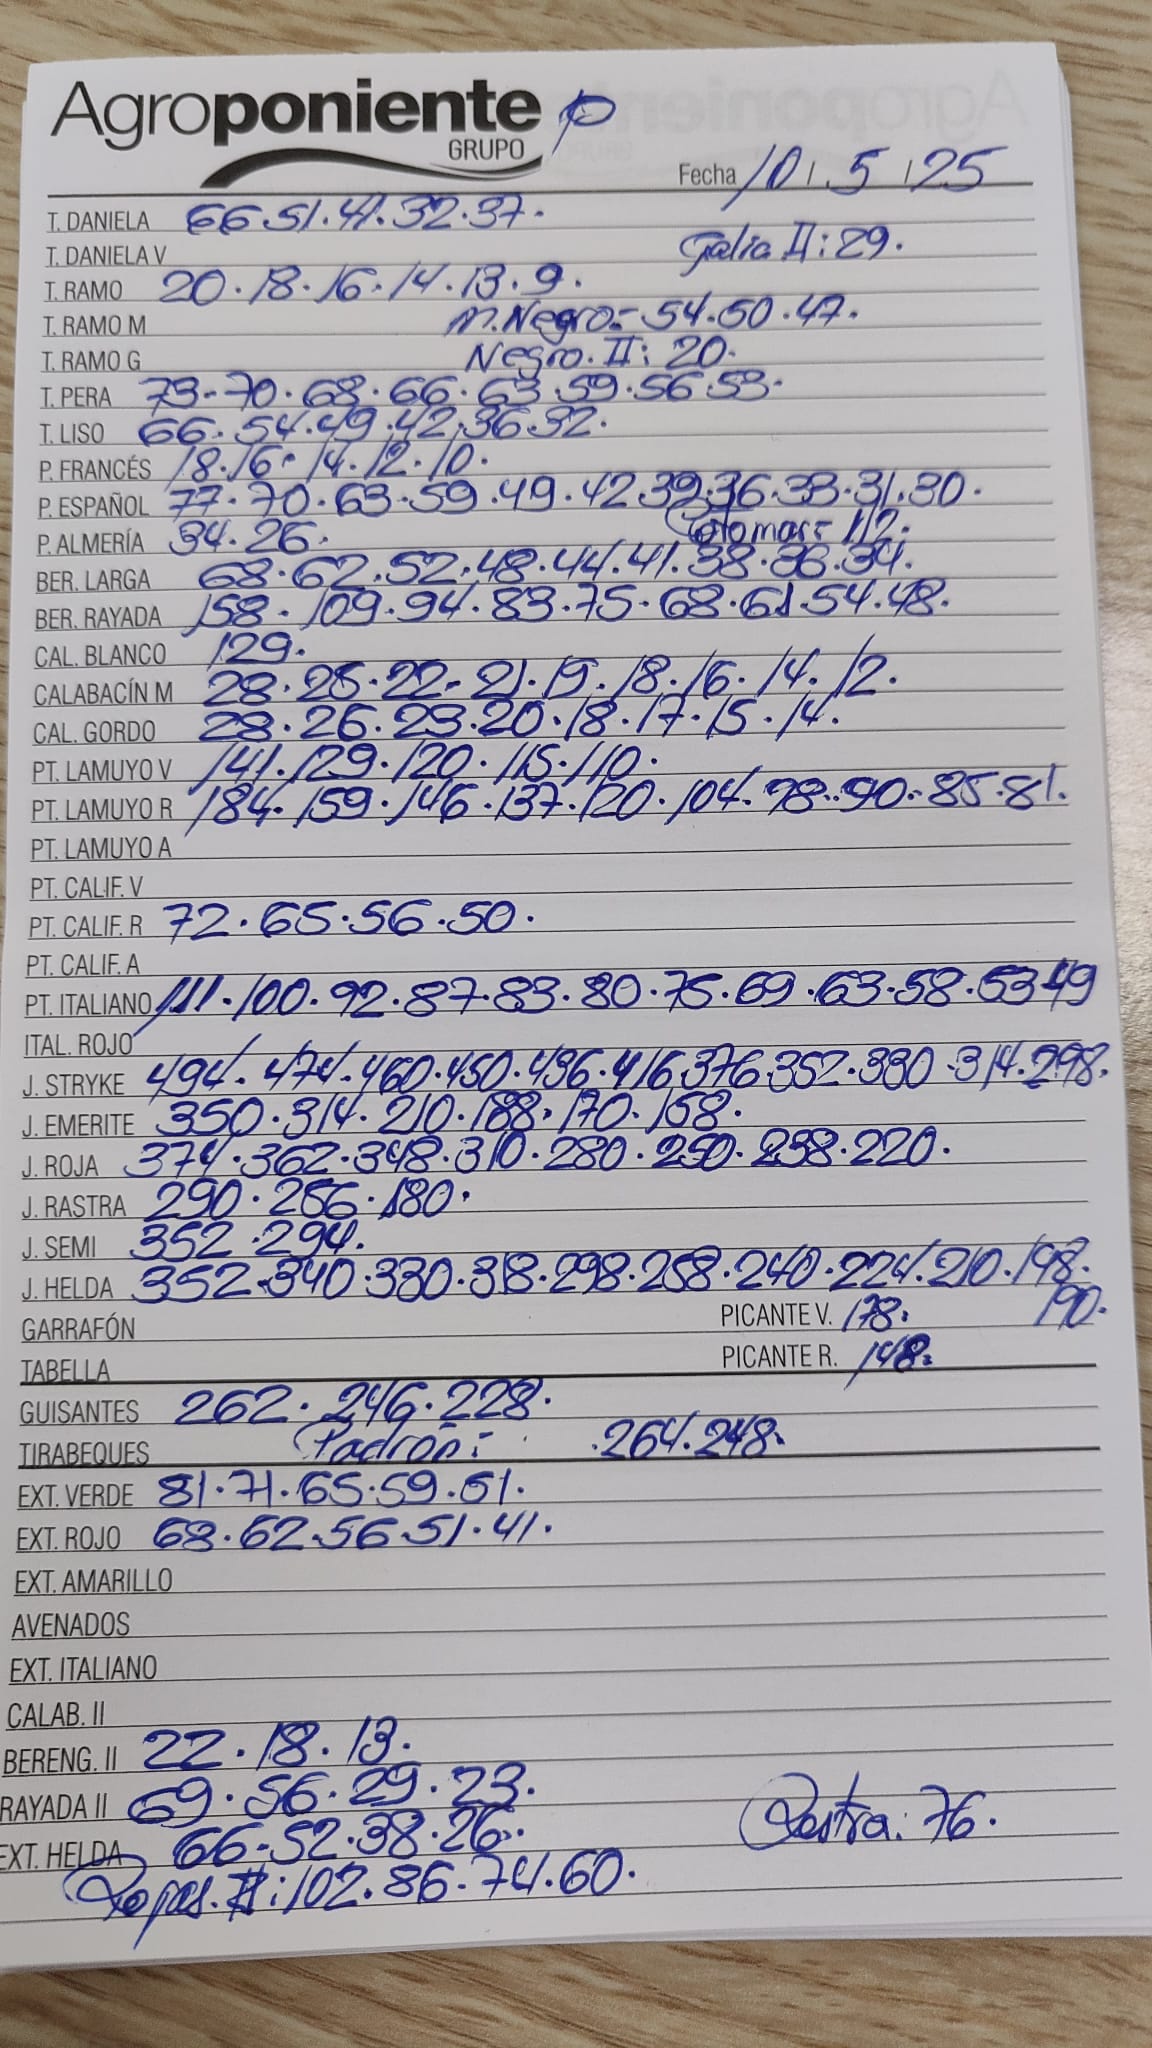 Agroponiente P
GRUPO
Fecha 10 / 5 / 25
T. DANIELA 66.51.41.32.37.
T. DANELA V Galia II: 29.
T. RAMO 20.18.16.14.13.9.
T. RAMO M M.Negro:- 54.50.47.
T. RAMO G Negro.II: 20.
T. PERA 73-70.68.66.63.59.56.53.
T. LISO 66.54.49.42.36.32.
P. FRANCÉS 18.16.14.12.10.
P. ESPAÑOL 77.70.63.59.49.42.39.36.33.31.30.
P. ALMERÍA 34.26. 112.
BER. LARGA 68.62.52.48.44.41.38.36.34.
BER. RAYADA 158.109.94.83.75.68.61.54.48.
CAL. BLANCO 129.
CALABACÍN M 28.25.22-21.19.18.16.14.12.
CAL. GORDO 28.26.23.20.18.17.15.14.
PT. LAMUYO V 141.129.120.115.110.
PT. LAMUYO R 184.159.146.137.120.104.98.90.85.81.
PT. LAMUYO A
PT. CALIF. V
PT. CALIF. R 72.65.56.50.
PT. CALIF. A
PT. ITALIANO 111.100.92.87.83.80.75.69.63.58.53 49
ITAL. ROJO
J. STRYKE 494.474.460.450.436.416.376.352.330.314.298.
J. EMERITE 350.314.210.188.170.158.
J. ROJA 374.362.348.310.280.250.238.220.
J. RASTRA 290.256.180.
J. SEMI 352.294.
J. HELDA 352.340.330.318.298.258.240.224.210.198.
GARRAFÓN PICANTE V. 178. 190.
TABELLA PICANTE R. 148.
GUISANTES 262.246.228.
TIRABEQUES Padrón: .264.248.
EXT. VERDE 81.71.65.59.51.
EXT. ROJO 68.62.56.51.41.
EXT. AMARILLO
AVENADOS
EXT. ITALIANO
CALAB. II
BERENG. II 22.18.13.
RAYADA II 69.56.29.23.
EXT. HELDA 66-52.38.26. Rastra: 76.
Rojas. II: 102.86.74.60.